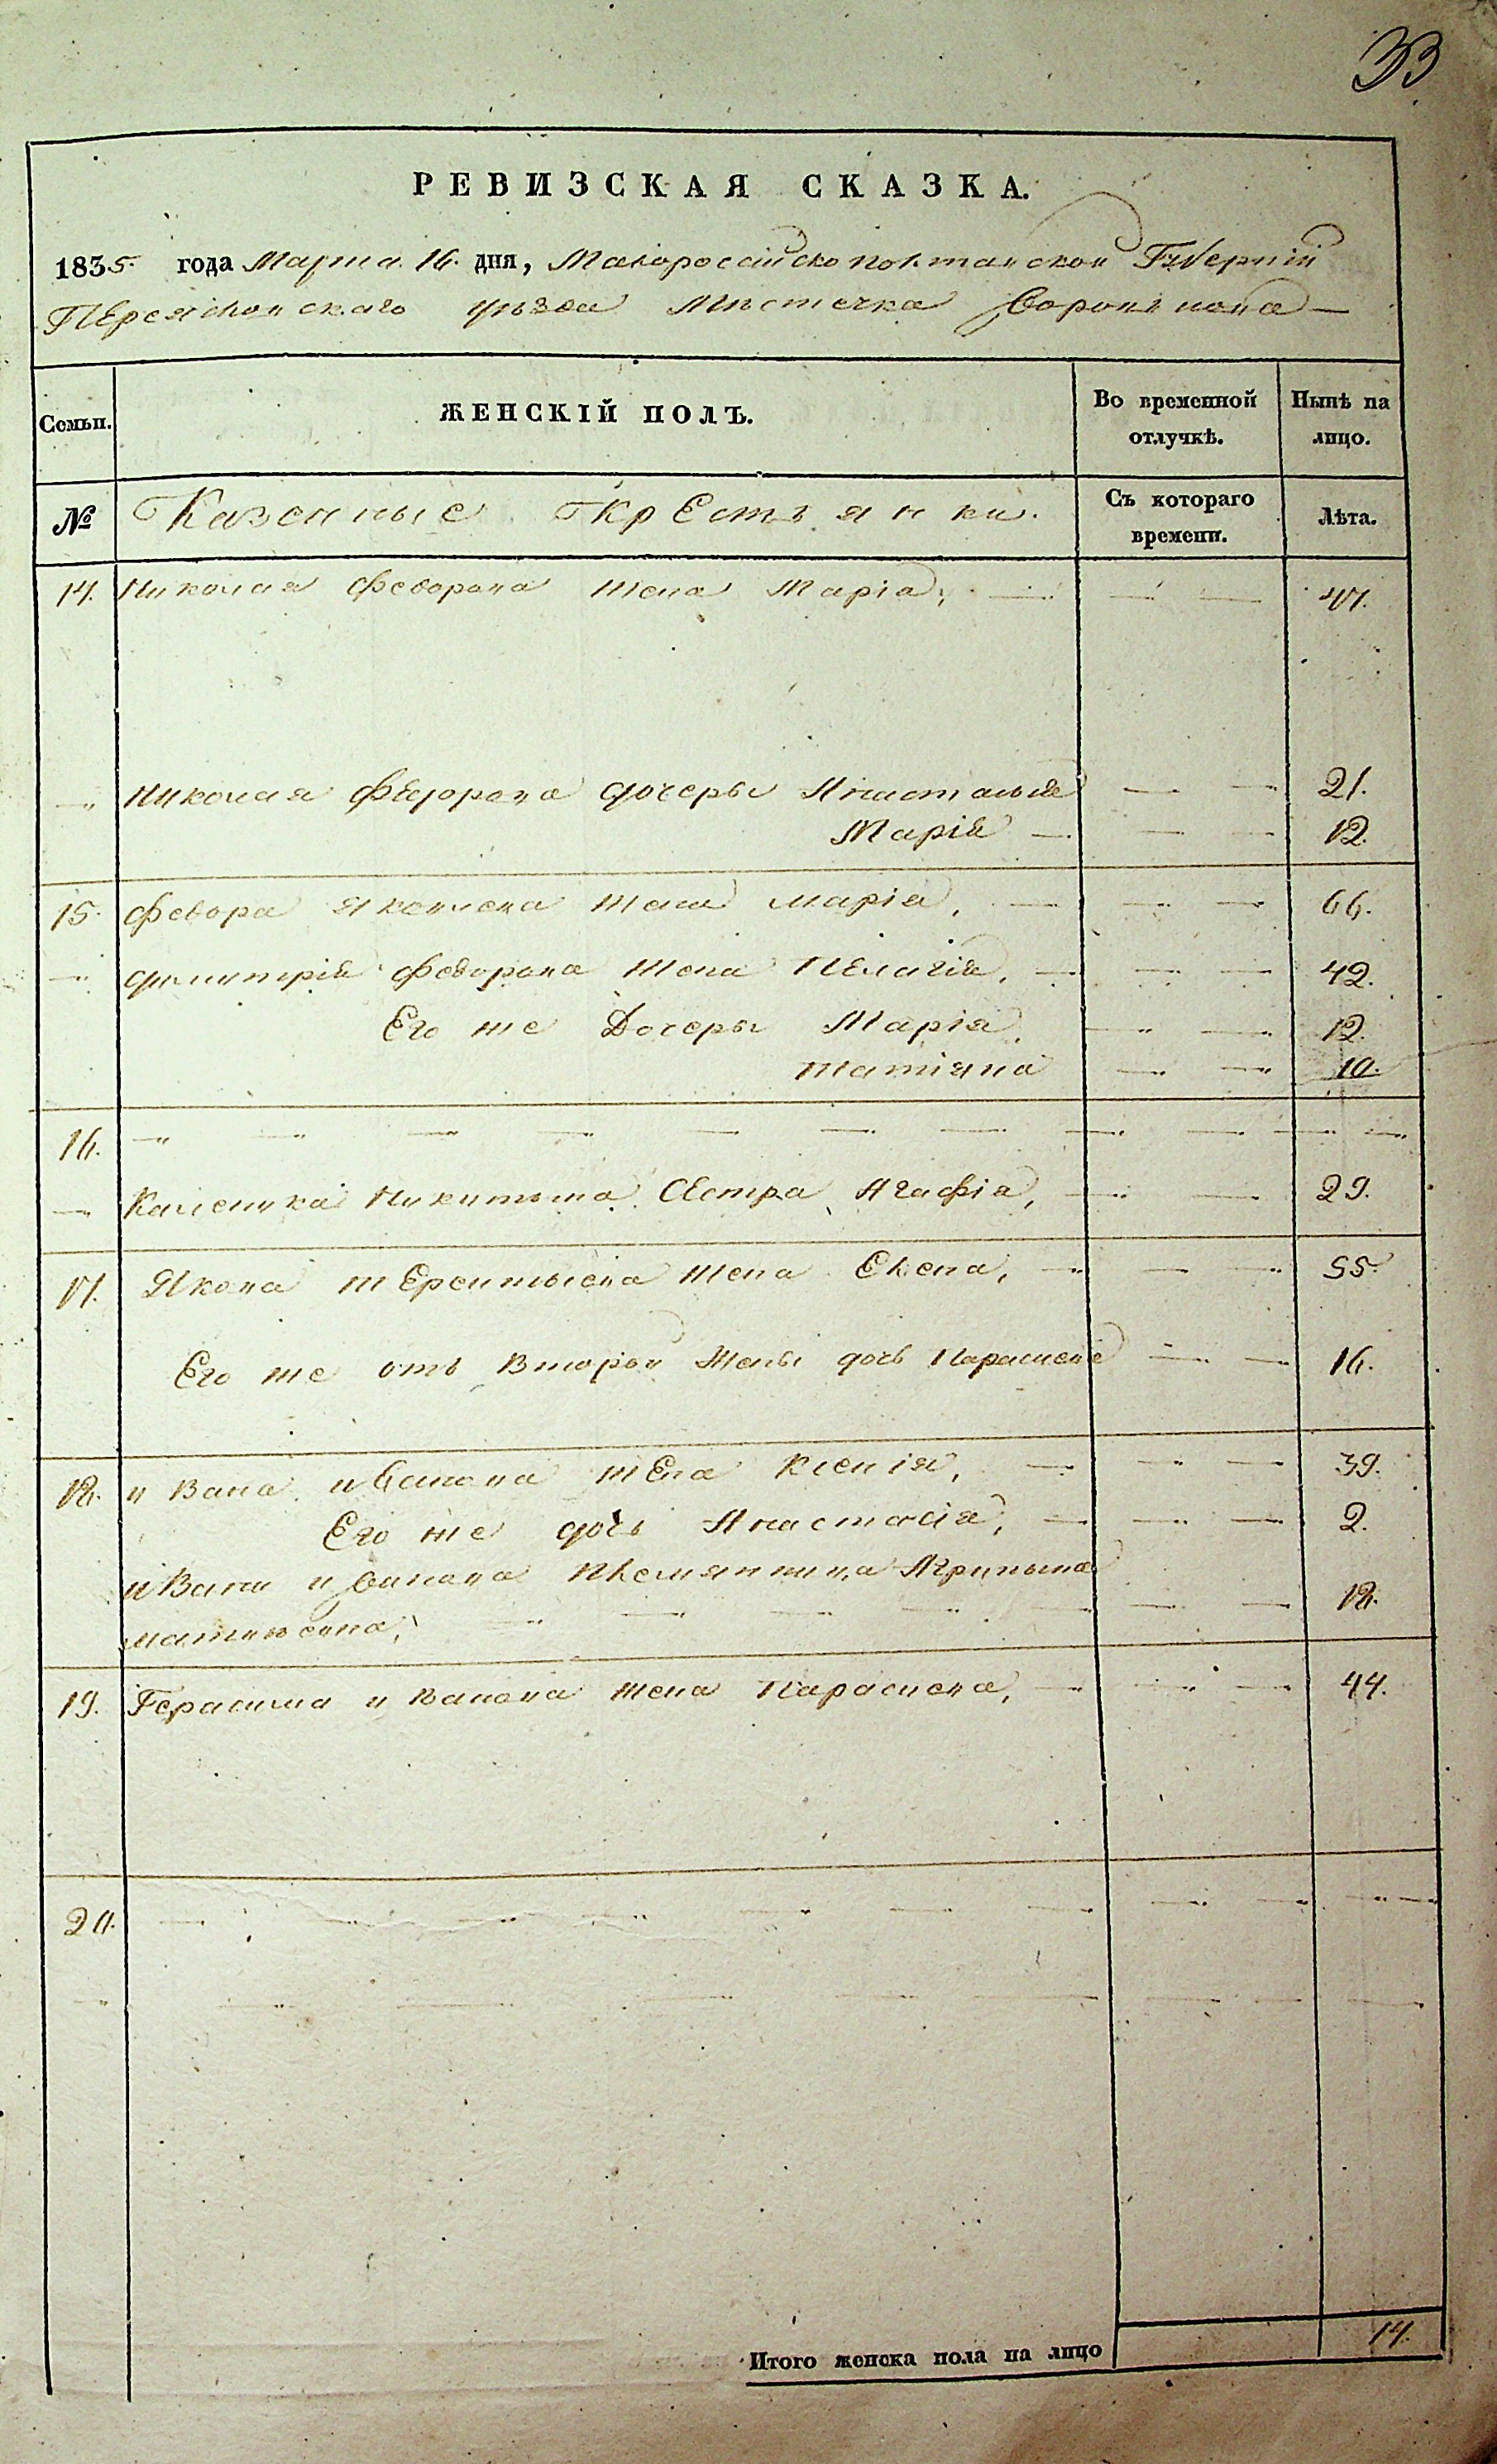 33
РЕВИЗСКАЯ СКАЗКА.
1835. года Марта 16. дня, Малоросайско полтавской Губерніи
Переясловскаго уѣзда Мѣстечка Воронкова
Семьи. ЖЕНСКІЙ ПОЛЪ. Во временной отлучкѣ. Нынѣ на лицо.
№ Казенные Крестьянки. Съ котораго времени. Лѣта.
14. Николая Федорова жена Марія, 47.
Николая Федорова дочеры Анастасья 21.
Марія 12.
15. Федора Яковлева жена Марія, 66.
Дмитрія Федорова жена Пелагія, 42.
Его же Дочеры Марія, 12.
татіяна 10.
16.
Каленика Никитина Сестра Агафіа, 29.
17. Якова терентьева жена Елена, 55.
Его же отъ второй жены дочь Параскева 16.
18. ивана иванова жена Ксенія, 39.
Его же дочь Анастасія, 2.
ивана иванова племянница Агрипына
матвѣева, 18.
19. Герасима иванова жена Параскева, 44.
20.
Итого женска пола на лицо 14.